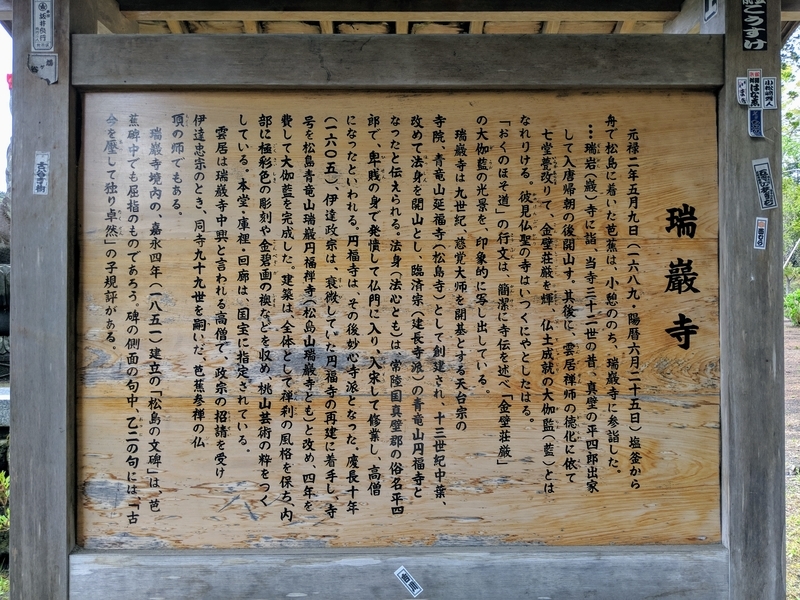 瑞巌寺
元禄二年五月九日(一六八九・陽暦六月二十五日)塩釜から
舟で松島に着いた芭蕉は、小憩ののち、瑞巌寺に参詣した。
…瑞岩(巌)寺に詣、当寺三十二世の昔、真壁の平四郎出家
して入唐帰朝の後開山す。其後に、雲居禅師の徳化に依て
七堂甍改りて、金壁荘厳を輝、仏土成就の大伽監(藍)とは
なれりける。彼見仏聖の寺はいつくにやとしたはる。
「おくのほそ道」の行文は、簡潔に寺伝を述べ「金壁荘厳」
の大伽藍の光景を、印象的に写し出している。
瑞巌寺は九世紀、慈覚大師を開基とする天台宗の
寺院、青竜山延福寺(松島寺)として創建され、十三世紀中葉、
改めて法身を開山とし、臨済宗(建長寺派)の青竜山円福寺と
なったと伝えられる。法身(法心とも)は、常陸国真壁郡の俗名平四
郎で、卑賎の身で発憤して仏門に入り、入宋して修業し、高僧
になったといわれる。円福寺は、その後妙心寺派となった。慶長十年
(一六〇五)、伊達政宗は、衰微していた円福寺の再建に着手し、寺
号を松島青竜山瑞巌円福禅寺(松島山瑞巌寺とも)と改め、四年を
費して大伽藍を完成した。建築は、全体として禅刹の風格を保ち、内
部に極彩色の彫刻や金碧画の襖などを収め、桃山芸術の粋をつく
している。本堂・庫裡・回廊は、国宝に指定されている。
雲居は瑞巌寺中興と言われる高僧で、政宗の招請を受け
伊達忠宗のとき、同寺九十九世を嗣いだ。芭蕉参禅の仏
頂の師でもある。
瑞巌寺境内の、嘉永四年(一八五一)建立の「松島の文碑」は、芭
蕉碑中でも屈指のものであろう。碑の側面の句中、乙二の句には、「古
今を壓して独り卓然」の子規評がある。
こうすけ